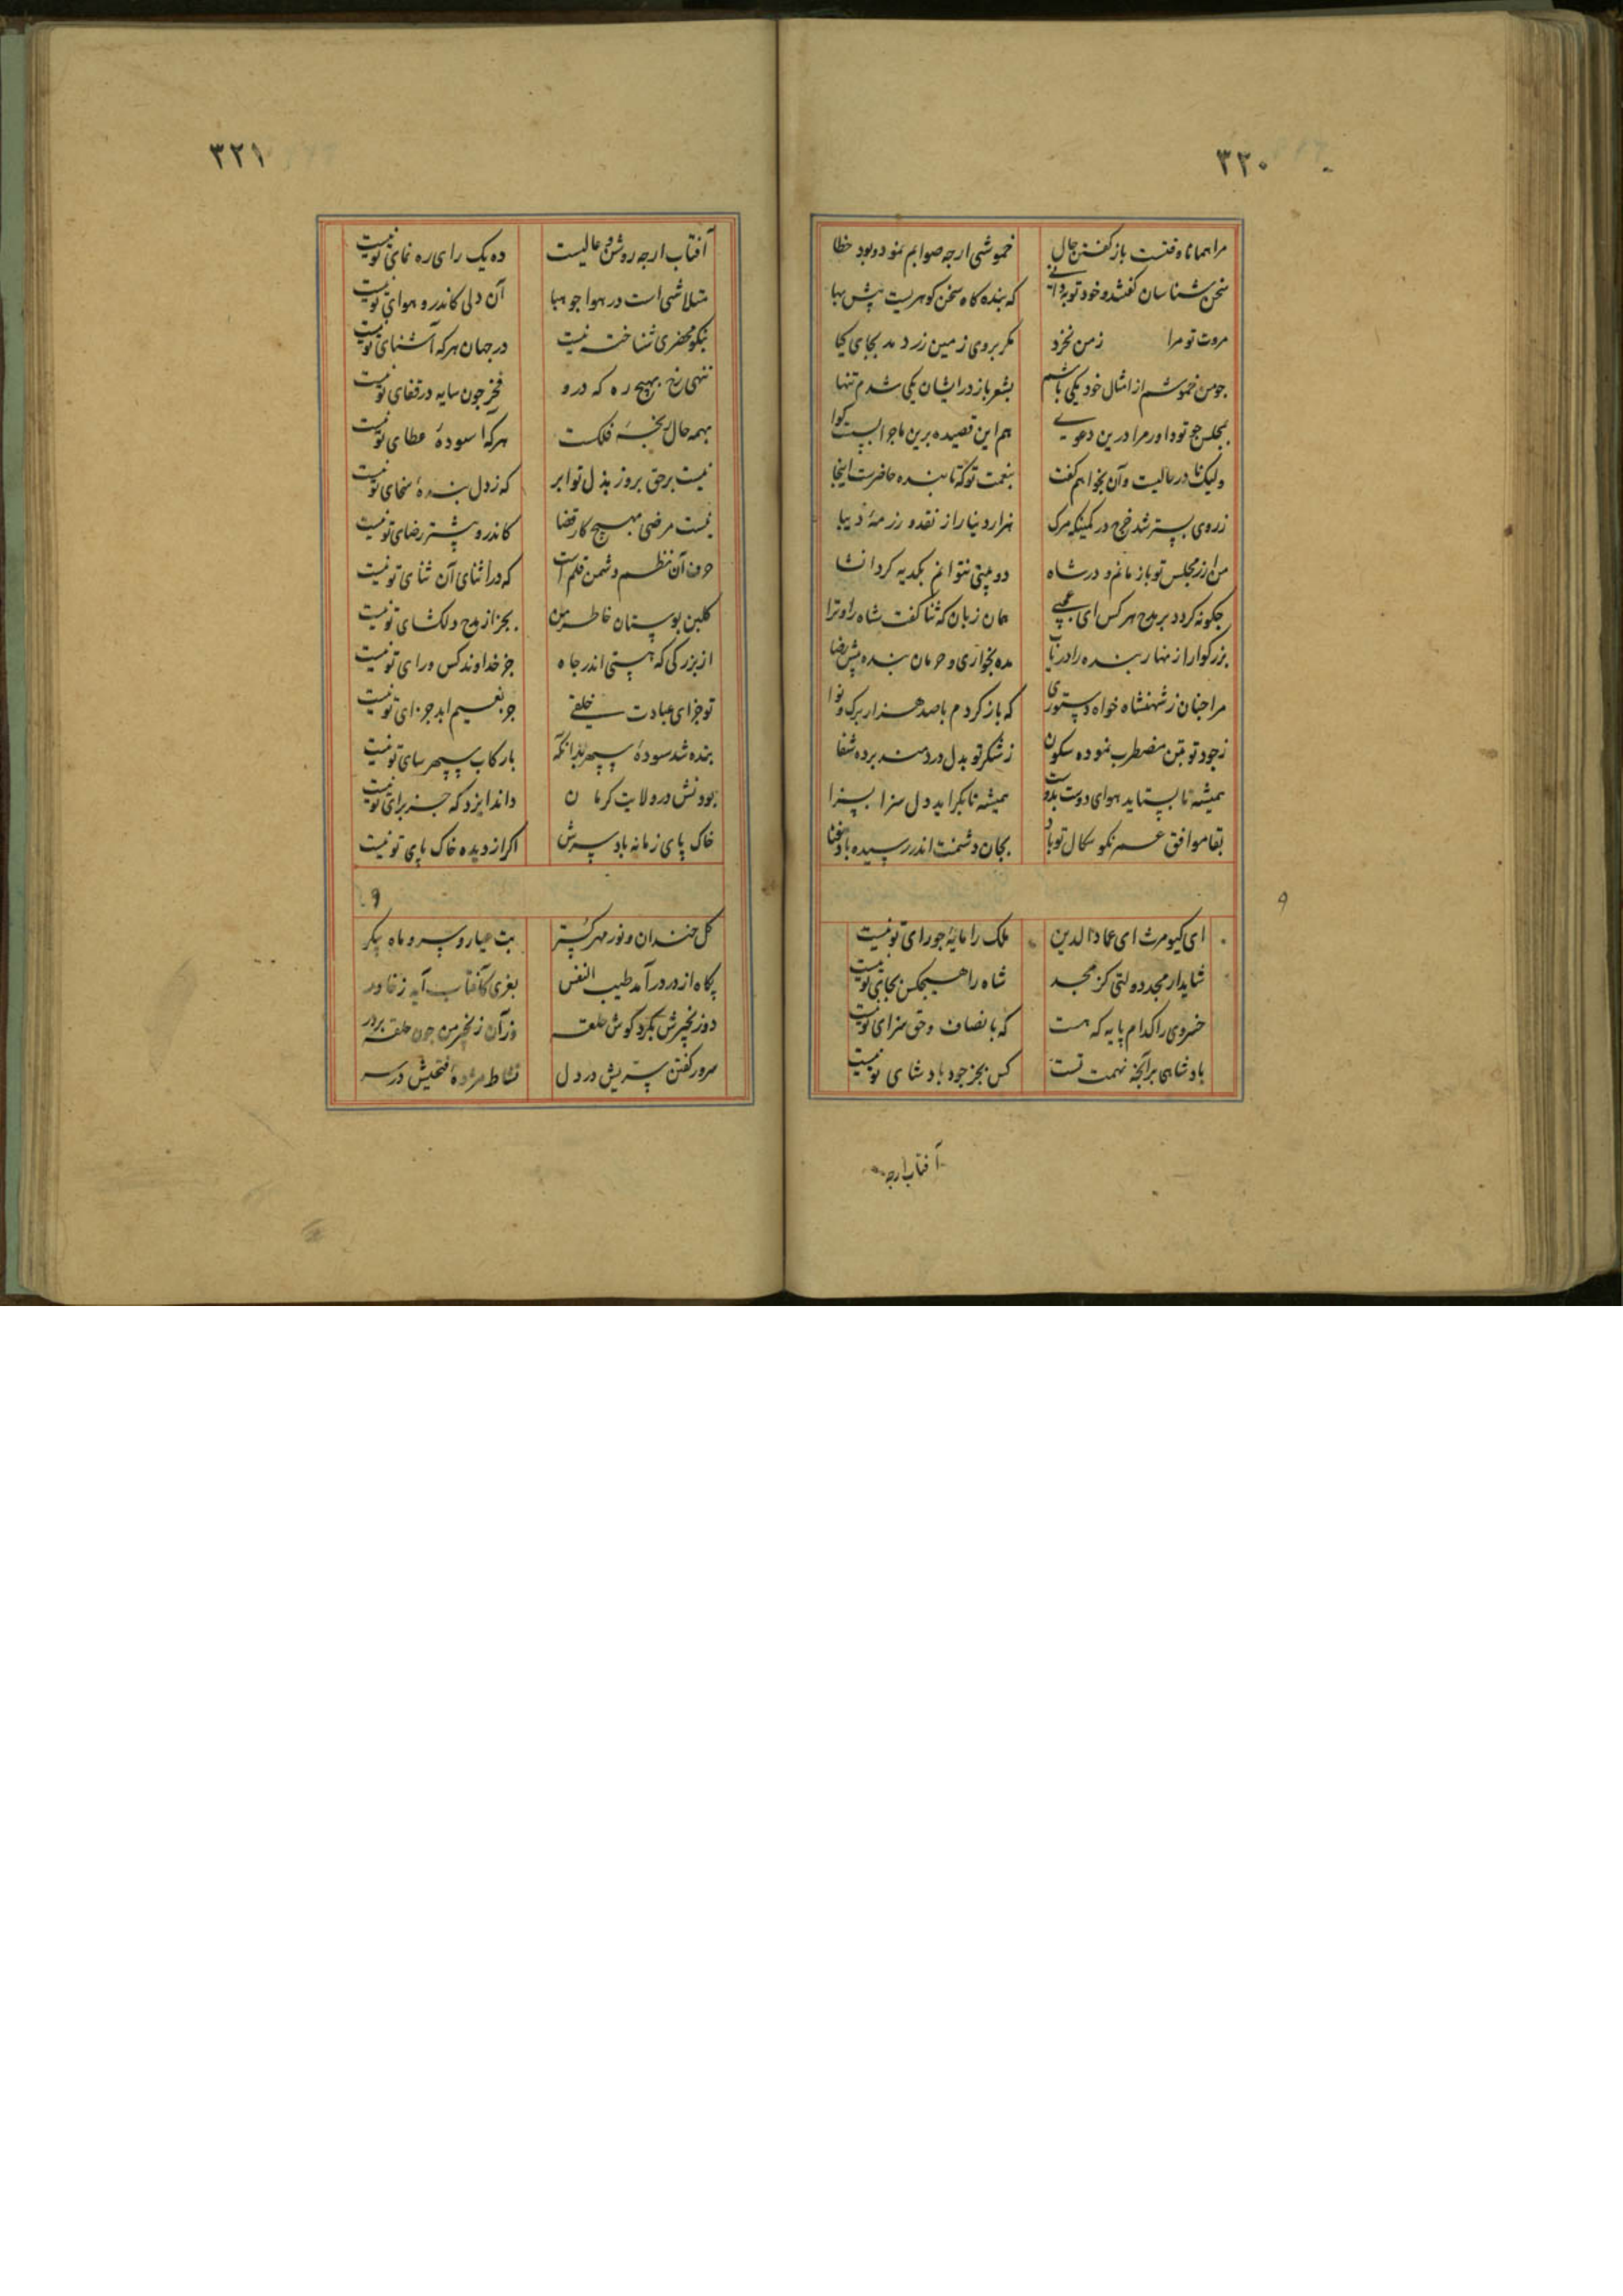 ۳۲۰
مرا همانا وقتست باز گفتن حال خموشی ارجه صوابم نمود و بود خطا
سخن شناسان گفتند و خود تو به دانی که بنده کاه سخن کوهریست پیش بها
مروت تو مرا زمن نخرد مکر بروی زمین زر دمد بجای کیا
جو من خموشم از امثال خود یکی باشم بشعر باز در ایشان یکی شدم تنها
بمجلس جو تو داور مرا درین دعوی هم این قصیده برین ماجرا بسست کوا
ولیک نادره حالیست وآن بخواهم گفت بنعمت تو که تا بنده حاضرست اینجا
ز روی بستر شد خرج در هزار دینار از نقد و رزمهٔ دیبا
من ار ز مجلس تو باز مانم و در شاه دو بیتی نتوانم بکدیه کرد انشا
جکونه کردد بر مدح هر کس ای عجبی همان زبان که ثنا گفت شاه را و ترا
بزرکوارا زنهار بنده را دریاب مده بخواری و حرمان بنده بیش رضا
مرا جنان ز شهنشاه خواه دستوری که باز کردم با صد هزار برک و نوا
ز جود تو بتن مضطرب نموده سکون ز شکر تو بدل دردمند برده شفا
همیشه تا بستاید هوای دوست بدوست همیشه تا بکراید دل سزا بسزا
بقا موافق عمر نکو سکال تو باد بجان دشمنت اندر رسیده باد فنا
ای کیومرث ای عماد الدین ملک را مایهٔ جو رای تو نیست
شاید ار مجد دولتی کز مجد شاه را هیجکس بجای تو نیست
خسروی را کدام پایه که هست که بانصاف و حق سزای تو نیست
بادشاهی برآنجه نهمت تست کس بجز جود بادشای تو نیست
آفتاب ارجه
۳۲۱
آفتاب ارجه روشن و عالیست ده یک رای ره نمای تو نیست
متلاشی است در هوا جو هبا آن دلی کاندرو هوای تو نیست
بنکو محضری شناخته نیست در جهان هر که آشنای تو نیست
ننهی رخ بهیج ره که درو فخر جون سایه در قفای تو نیست
بهمه حال رنجهٔ فلکست هر که آسودهٔ عطای تو نیست
نیست برحق بروز بذل تو ابر که ز دل بندهٔ سخای تو نیست
نیست مرضی بهیج کار قضا کاندرو بیشتر رضای تو نیست
حرف آن نظم دشمن قلم است که در اثنای آن ثنای تو نیست
کلبن بوستان خاطر من بجز از مدح دلکشای تو نیست
از بزرکی که هستی اندر جاه جز خداوند کس ورای تو نیست
تو جزای عبادت خلقی جز نعیم ابد جزای تو نیست
بنده شد سودهٔ سپهر بدانکه با رکاب سپهر سای تو نیست
بودنش در ولایت کرمان داند ایزد که جز برای تو نیست
خاک پای زمانه باد سرش اکر از دیده خاک پای تو نیست
کل خندان و نور مهر کستر بت عیار و سرو ماه پیکر
بکاه از در در آمد طیب النفس بغزی کآفتاب آید ز خاور
دو زنجیرش بکرد کوش حلقه وز آن زنجیر من جون حلقه بر در
سرور کفتن بستریش در دل نشاط مژدهٔ فتحیش در سر